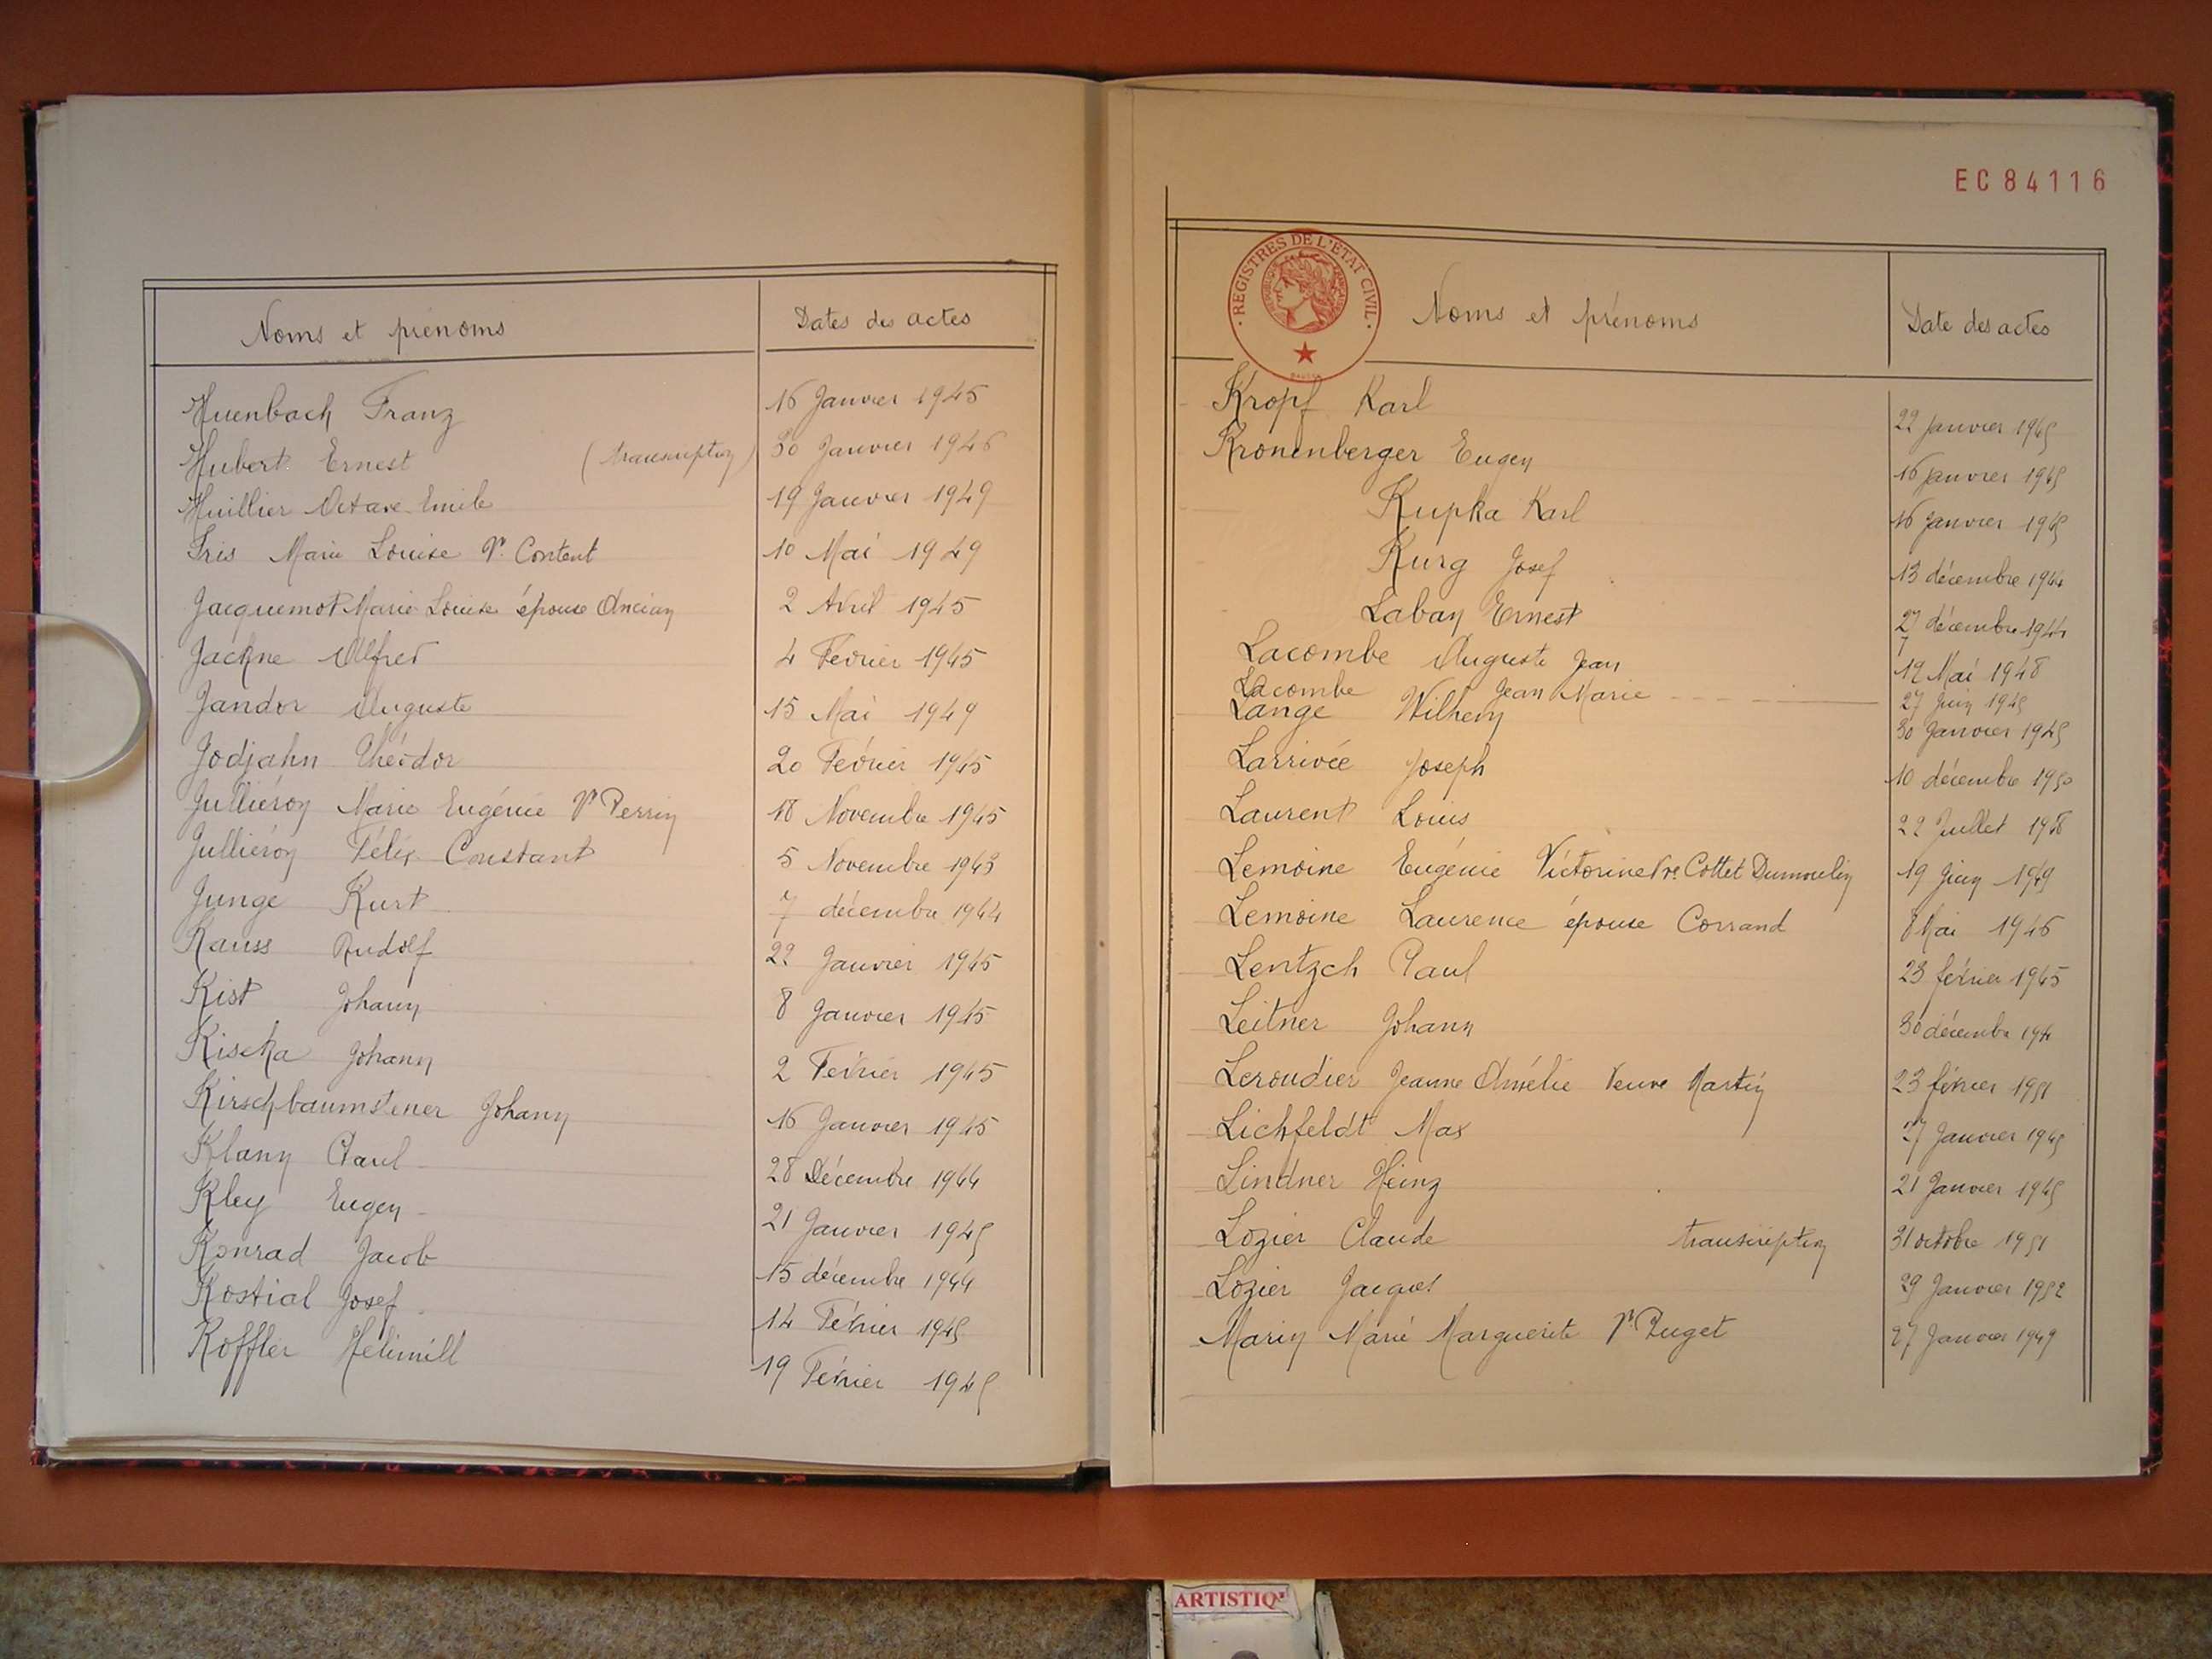 Noms et prénoms Dates des actes
Huenbach Franz 16 Janvier 1945
Hubert Ernest (transcription) 30 Janvier 1946
Huillier Octave Emile 19 Janvier 1949
Iris Marie Louise Ve Content 10 Mai 1949
Jacquemot Marie Louise épouse Ancian 2 Avril 1945
Jackne Alfred 4 Février 1945
Jandor Auguste 15 Mai 1949
Jodjahn Théodor 20 Février 1945
Julliéron Marie Eugénie Ve Perrin 18 Novembre 1945
Julliéron Félix Constant 5 Novembre 1943
Junge Kurt 7 décembre 1944
Kauss Rudolf 22 Janvier 1945
Kist Johann 8 Janvier 1945
Kiscka Johann 2 Février 1945
Kirschbaumstener Johann 16 Janvier 1945
Klann Paul 28 Décembre 1944
Kley Eugen 21 Janvier 1945
Konrad Jacob 15 décembre 1944
Kostial Josef 14 Février 1945
Koffler Helimill 19 Février 1945
EC84116
REGISTRES DE L'ÉTAT CIVIL
RÉPUBLIQUE FRANÇAISE
Noms et prénoms Date des actes
Kropf Karl 22 janvier 1945
Kronenberger Eugen 16 janvier 1945
Kupka Karl 16 janvier 1945
Kurg Josef 13 décembre 1944
Laban Ernest 27 décembre 1944
Lacombe Auguste Jean 12 Mai 1948
Lacombe Jean Marie 27 Juin 1945
Lange Wilhem 30 Janvier 1945
Larrivée Joseph 10 décembre 1950
Laurent Louis 22 Juillet 1948
Lemoine Eugénie Victorine Vve Cottet Dumoulin 19 Juin 1949
Lemoine Laurence épouse Corrand 8 Mai 1946
Lentzch Paul 23 février 1945
Leitner Johann 30 décembre 1944
Leroudier Jeanne Amélie Veuve Martin 23 février 1951
Lichfeldt Max 17 Janvier 1945
Lindner Heinz 21 Janvier 1945
Lozier Claude transcription 31 octobre 1951
Lozier Jacques 29 Janvier 1952
Marin Marie Marguerite Ve Puget 27 Janvier 1949
ARTISTIQ